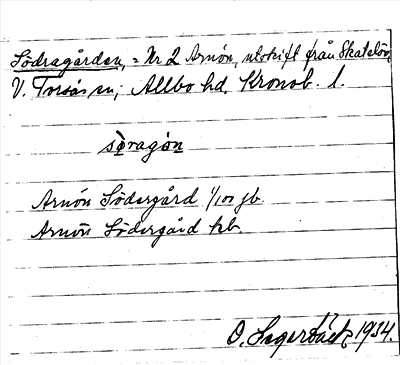 Södragården, = Nr 2 Arnön, utskift från Skatelöv,
V. Torsås sn; Allbo hd. Kronob. l.
sòragȯn
Arnön Södergård 1/100 jb.
Arnön Södergård kb.
O. Lagerbäck 1934.